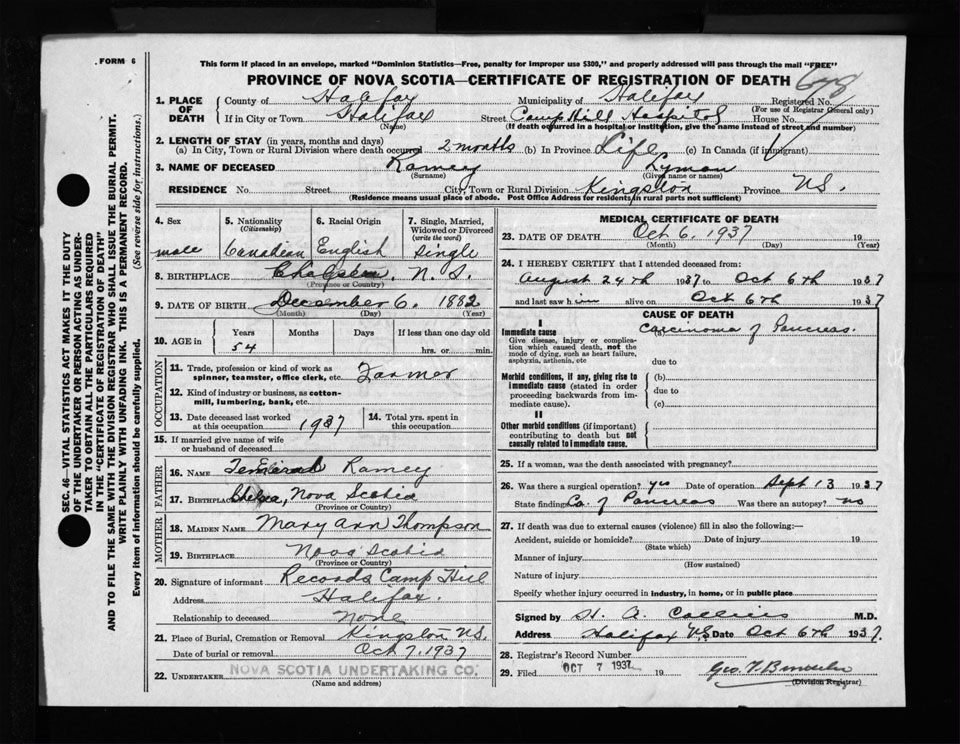 FORM 6
This form if placed in an envelope, marked "Dominion Statistics—Free, penalty for improper use $300," and properly addressed will pass through the mail "FREE"
PROVINCE OF NOVA SCOTIA—CERTIFICATE OF REGISTRATION OF DEATH
678
1. PLACE OF DEATH County of Halifax Municipality of Halifax Registered No.
(For use of Registrar General only)
If in City or Town Halifax Street Camp Hill Hospital House No.
(Name) (If death occurred in a hospital or institution, give the name instead of street and number)
2. LENGTH OF STAY (in years, months and days)
(a) In City, Town or Rural Division where death occurred 2 months (b) In Province Life (c) In Canada (if immigrant)
3. NAME OF DECEASED Ramey Lyman
(Surname) (Given name or names)
RESIDENCE No. Street City, Town or Rural Division Kingston Province N.S.
(Residence means usual place of abode. Post Office Address for residents in rural parts not sufficient)
4. Sex male
5. Nationality (Citizenship) Canadian
6. Racial Origin English
7. Single, Married, Widowed or Divorced (write the word) Single
8. BIRTHPLACE N. S.
(Province or Country)
9. DATE OF BIRTH December 6, 1882
(Month) (Day) (Year)
10. AGE in Years Months Days If less than one day old
54 hrs. or min.
OCCUPATION
11. Trade, profession or kind of work as spinner, teamster, office clerk, etc. Farmer
12. Kind of industry or business, as cotton-mill, lumbering, bank, etc.
13. Date deceased last worked at this occupation 1937
14. Total yrs. spent in this occupation
15. If married give name of wife or husband of deceased
FATHER
16. NAME Ramey
17. BIRTHPLACE Chelsea, Nova Scotia
(Province or Country)
MOTHER
18. MAIDEN NAME Mary Ann Thompson
19. BIRTHPLACE Nova Scotia
(Province or Country)
20. Signature of informant Records Camp Hill
Address Halifax.
Relationship to deceased None
21. Place of Burial, Cremation or Removal Kingston N.S.
Date of burial or removal Oct 7, 1937
22. UNDERTAKER NOVA SCOTIA UNDERTAKING CO.
(Name and address)
MEDICAL CERTIFICATE OF DEATH
23. DATE OF DEATH Oct 6, 1937 19
(Month) (Day) (Year)
24. I HEREBY CERTIFY that I attended deceased from:
August 24th 1937 to Oct 6th 1937
and last saw him alive on Oct 6th 1937
CAUSE OF DEATH
I
Immediate cause (a) Carcinoma of Pancreas.
Give disease, injury or complication which caused death, not the mode of dying, such as heart failure, asphyxia, asthenia, etc
due to
Morbid conditions, if any, giving rise to immediate cause (stated in order proceeding backwards from immediate cause).
(b)
due to
(c)
II
Other morbid conditions (if important) contributing to death but not causally related to immediate cause.
25. If a woman, was the death associated with pregnancy?
26. Was there a surgical operation? yes Date of operation Sept 13 1937
State finding Ca. of Pancreas Was there an autopsy? no
27. If death was due to external causes (violence) fill in also the following:—
Accident, suicide or homicide? Date of injury 19
(State which)
Manner of injury
(How sustained)
Nature of injury
Specify whether injury occurred in industry, in home, or in public place
Signed by H. A. Collins M.D.
Address Halifax N.S Date Oct 6th 1937.
28. Registrar's Record Number
29. Filed OCT 7 1937 19 Geo.
(Division Registrar)
SEC. 46—VITAL STATISTICS ACT MAKES IT THE DUTY
OF THE UNDERTAKER OR PERSON ACTING AS UNDER-
TAKER TO OBTAIN ALL THE PARTICULARS REQUIRED
IN THE "CERTIFICATE OF REGISTRATION OF DEATH"
AND TO FILE THE SAME WITH THE DIVISION REGISTRAR WHO SHALL ISSUE THE BURIAL PERMIT.
WRITE PLAINLY WITH UNFADING INK. THIS IS A PERMANENT RECORD.
Every item of information should be carefully supplied. (See reverse side for instructions.)